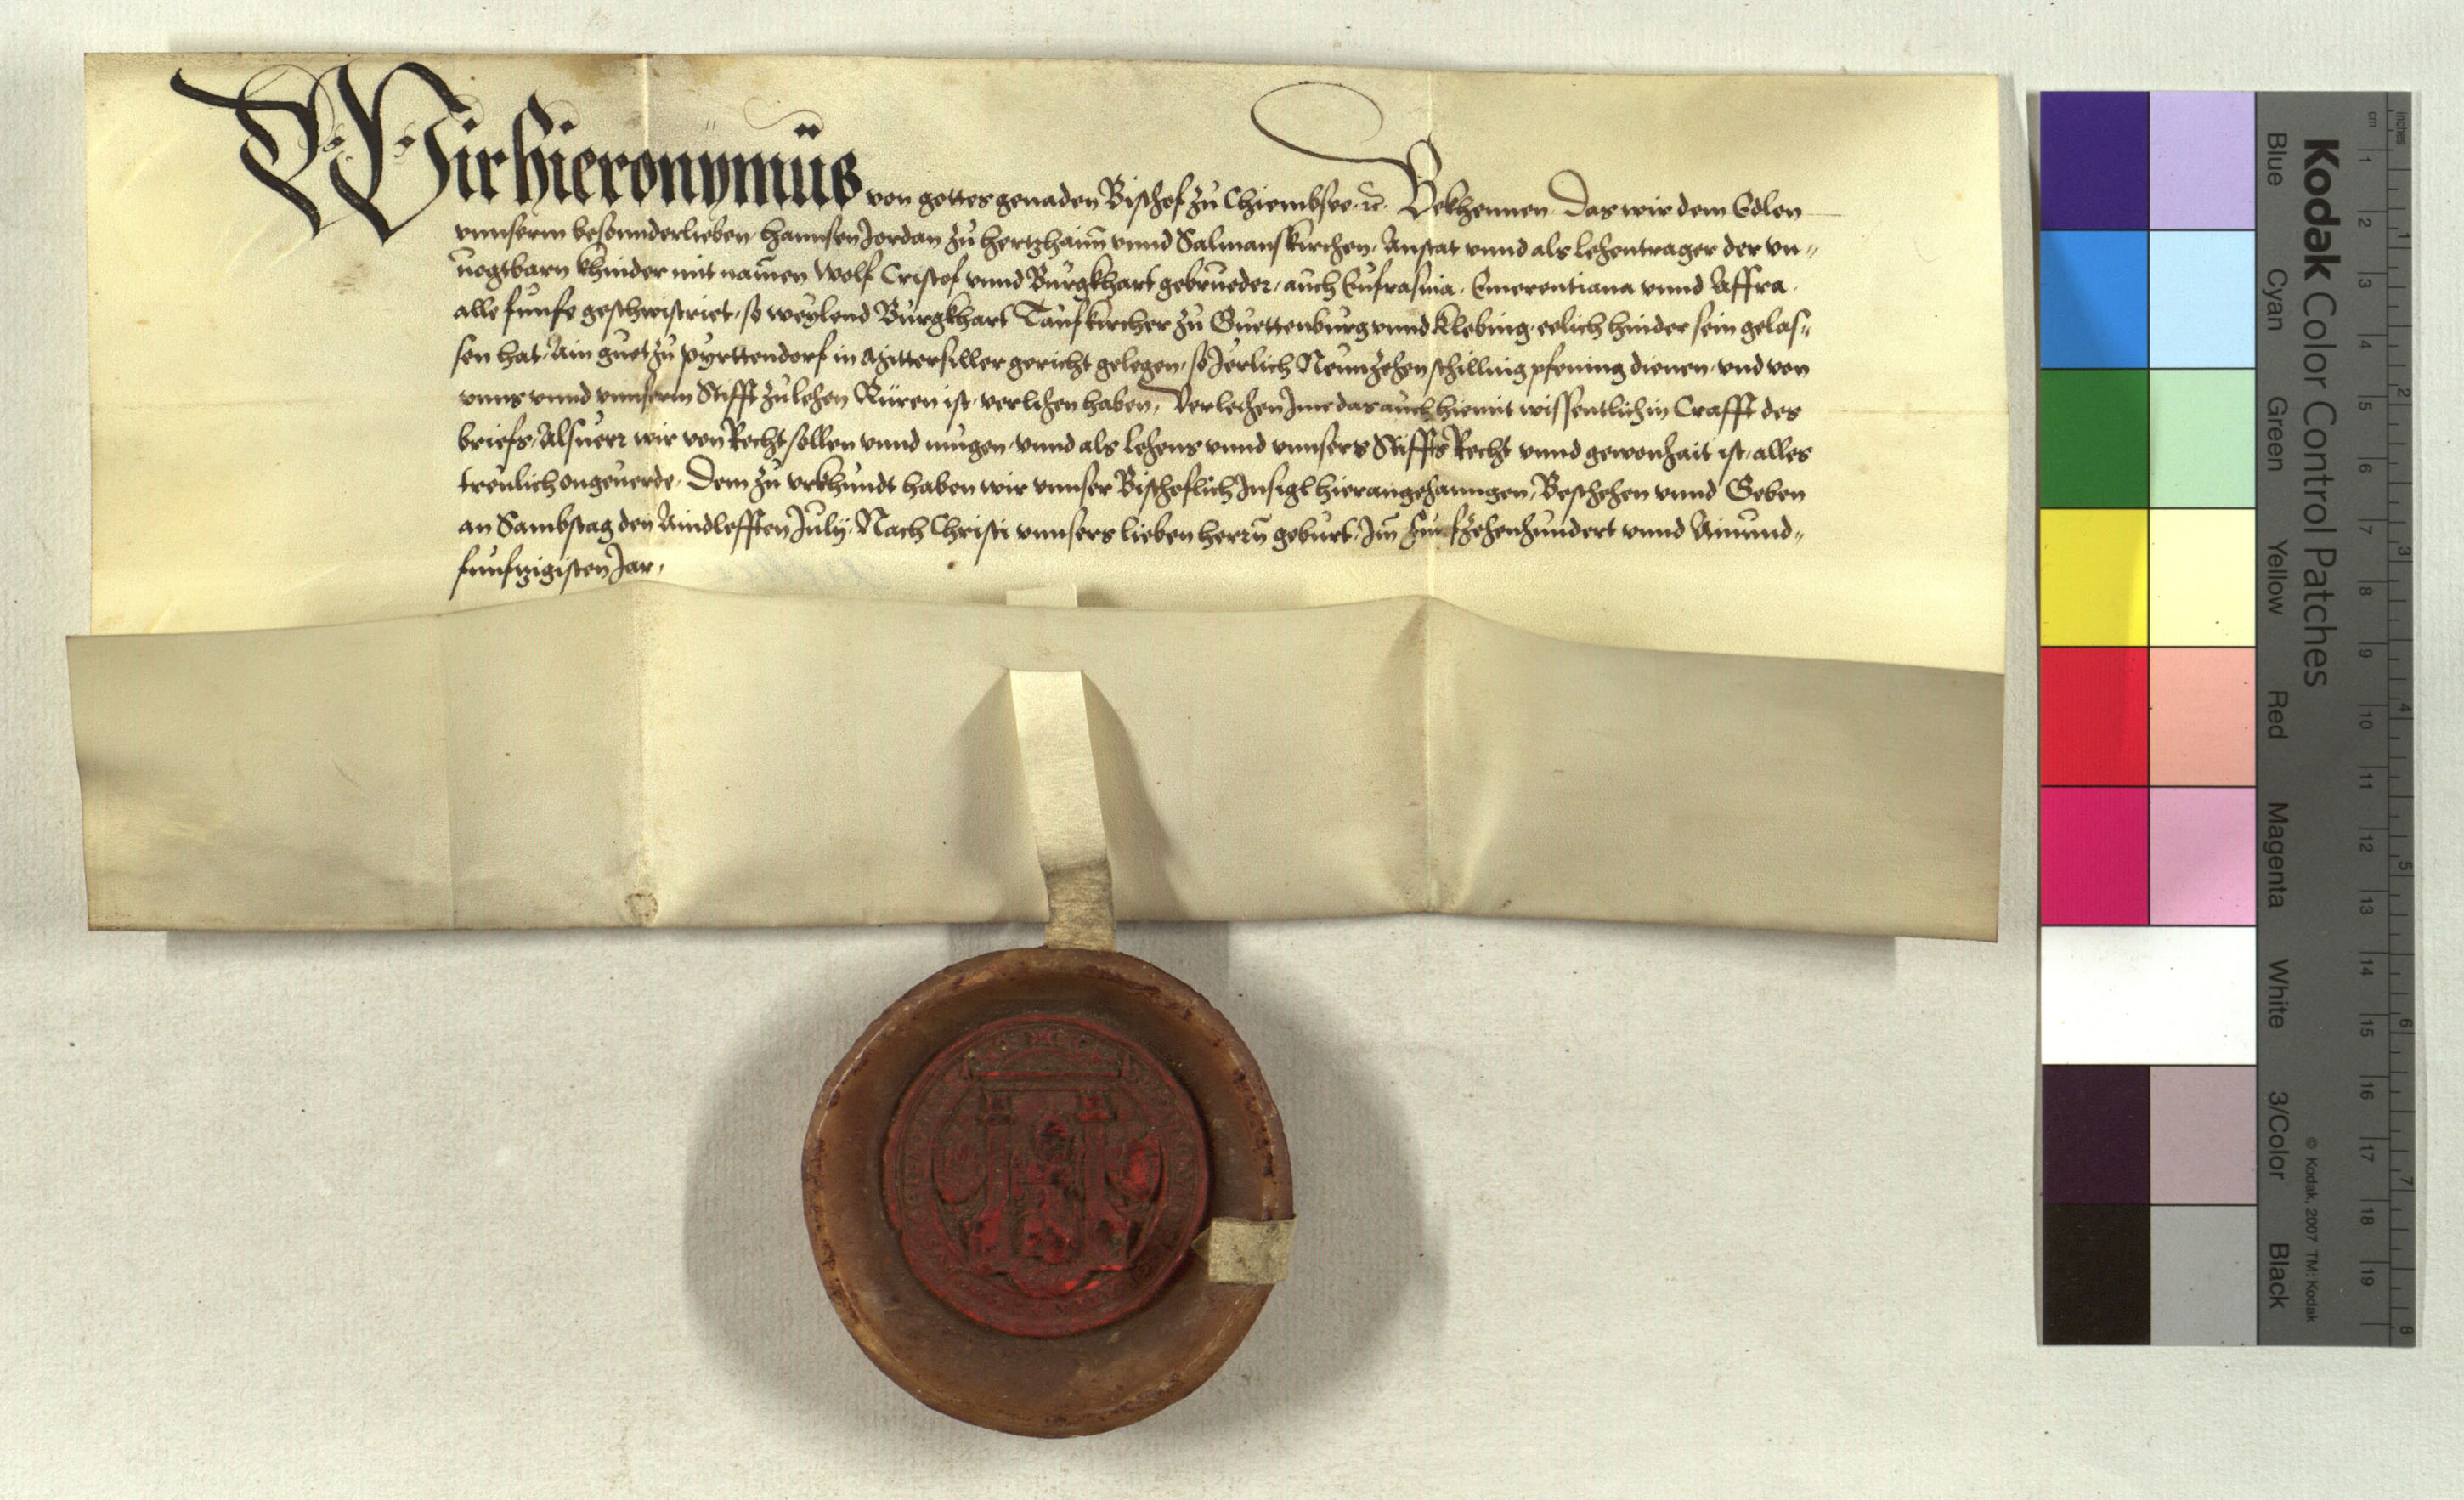 Wir Hieronymüs von gottes genaden Bischof zu Chiembsee ꝛc. Bekhennen. Das wir dem Edlen
vnnserm besonnderlieben Hannsen Jordan zu Hertzhaim vnnd Salmanskirchen, Anstat vnnd als lehentrager der vn-
uogtbarn khinder mit namen Wolf Cristof vnnd Burgkhart gebrueder, auch Eufrasina. Emerentiana vnnd Affra.
alle funfe geschwistriet, so weylend Burgkhart Taufkircher zu Guettenburg vnnd Klebing, eelich hinder sein gelas-
sen hat, Ain guet zu Pyrttendorf in Mittersiller gericht gelegen, so Jerlich Neunzehen schilling pfening dienen, vnd von
vnns vnnd vnnserm Stifft zu lehen Rüren ist, verlihen haben, Verleihen Jme das auch hiemit wissentlich in Crafft des
briefs, Alsuerr wir von Recht sollen vnnd mugen, vnnd als lehens vnnd vnnsers Stiffts Recht vnnd gewonhait ist, alles
treulich ongeuerde. Dem zu vrkhundt haben wir vnnser Bischeflich Insigl hieran gehanngen, Beschehen vnnd Geben
an Sambstag den Aindlefften July. Nach Christi vnnsers lieben herrn geburt, Im Funfzehenhundert vnnd Ainund-
funfzigisten Jar,
Kodak Color Control Patches
Blue Cyan Green Yellow Red Magenta White 3/Color Black
© Kodak, 2007 TM: Kodak
cm 1 2 3 4 5 6 7 8 9 10 11 12 13 14 15 16 17 18 19
inches 1 2 3 4 5 6 7 8